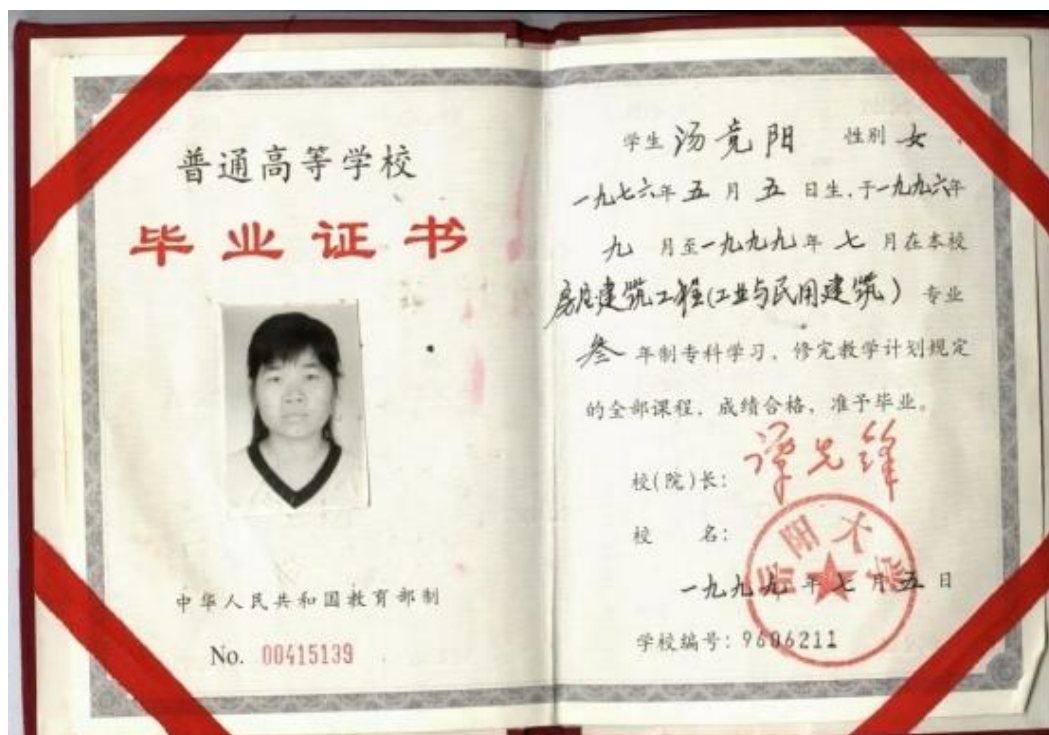 普通高等学校
毕业证书
中华人民共和国教育部制
No. 00415139
学生 汤竞阳 性别 女
一九七六年 五 月 五 日生,于一九九六年
九 月至一九九九年 七 月在本校
房屋建筑工程(工业与民用建筑) 专业
叁 年制专科学习,修完教学计划规定
的全部课程,成绩合格,准予毕业。
校(院)长: 谭先锋
校 名:
岳阳大学
一九九九年七月五日
学校编号: 9606211